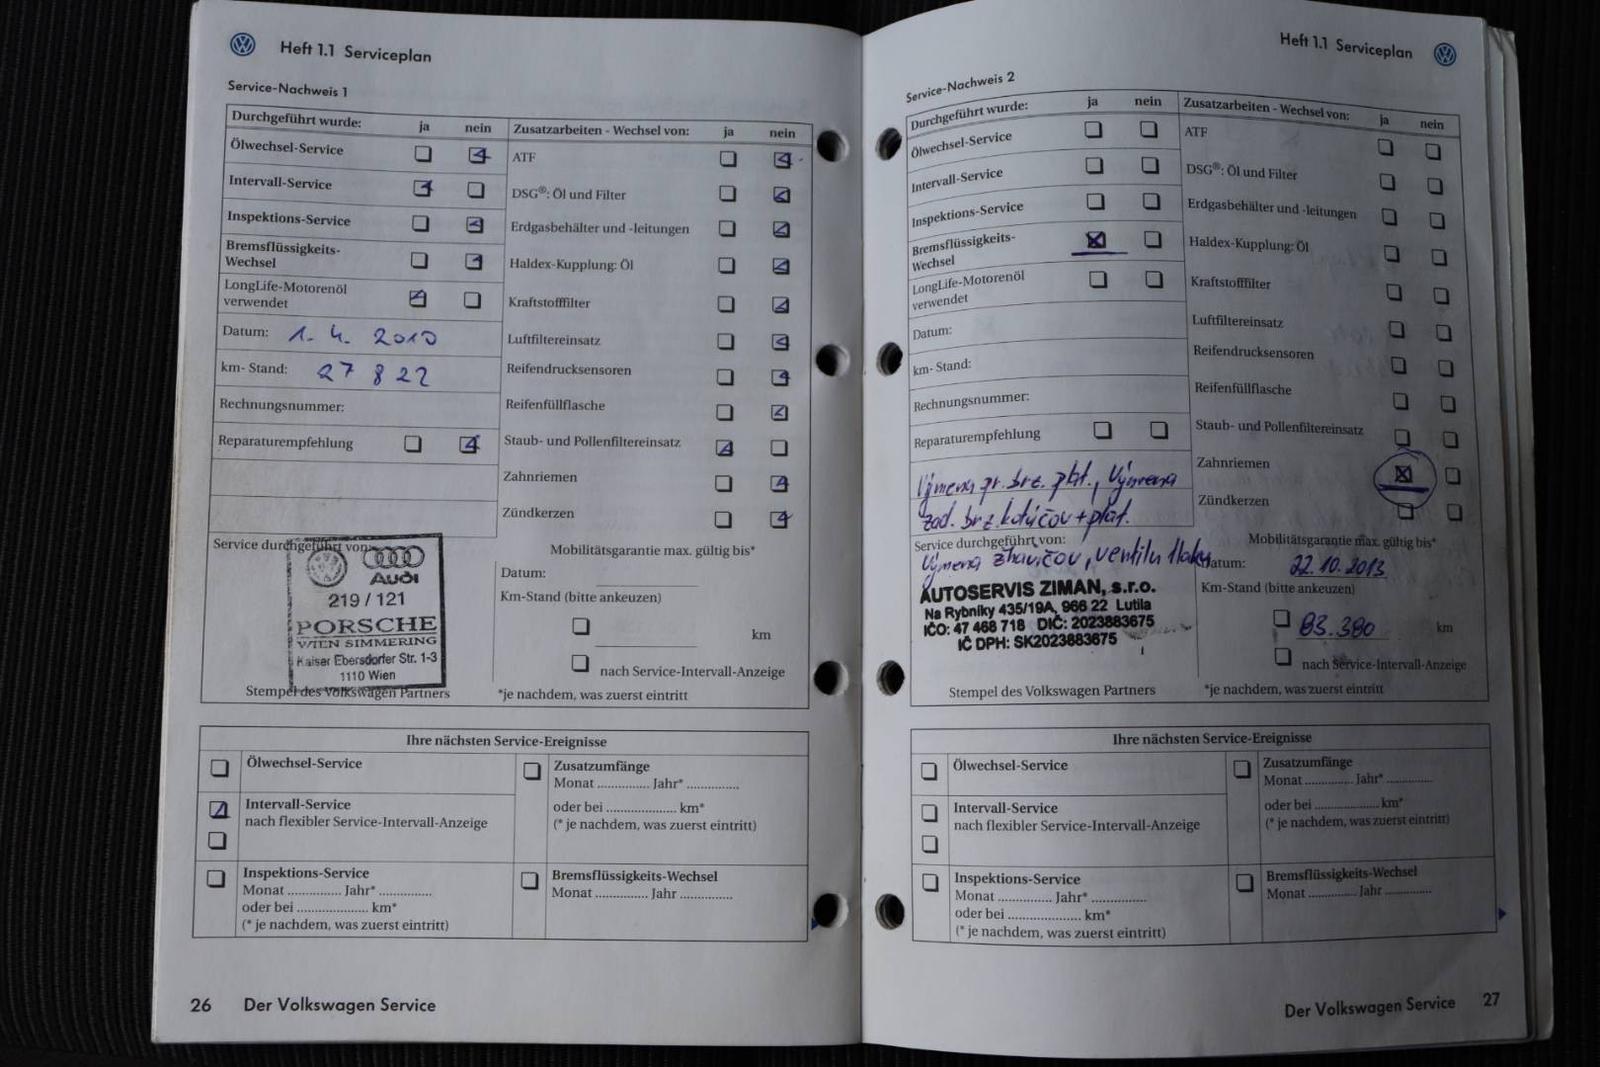 Heft 1.1 Serviceplan
Service-Nachweis 1
Durchgeführt wurde: ja nein
Ölwechsel-Service
Intervall-Service
Inspektions-Service
Bremsflüssigkeits-
Wechsel
LongLife-Motorenöl
verwendet
Datum: 1. 4. 2010
km- Stand: 27 822
Rechnungsnummer:
Reparaturempfehlung
Zusatzarbeiten - Wechsel von: ja nein
ATF
DSG®: Öl und Filter
Erdgasbehälter und -leitungen
Haldex-Kupplung: Öl
Kraftstofffilter
Luftfiltereinsatz
Reifendrucksensoren
Reifenfüllflasche
Staub- und Pollenfiltereinsatz
Zahnriemen
Zündkerzen
Service durchgeführt von:
Audi
219 / 121
PORSCHE
WIEN SIMMERING
Kaiser Ebersdorfer Str. 1-3
1110 Wien
Stempel des Volkswagen Partners
Mobilitätsgarantie max. gültig bis*
Datum:
Km-Stand (bitte ankeuzen)
km
nach Service-Intervall-Anzeige
*je nachdem, was zuerst eintritt
Ihre nächsten Service-Ereignisse
Ölwechsel-Service
Intervall-Service
nach flexibler Service-Intervall-Anzeige
Inspektions-Service
Monat .............. Jahr* ..............
oder bei .................... km*
(* je nachdem, was zuerst eintritt)
Zusatzumfänge
Monat .............. Jahr* ..............
oder bei .................... km*
(* je nachdem, was zuerst eintritt)
Bremsflüssigkeits-Wechsel
Monat .............. Jahr ..............
26 Der Volkswagen Service
Heft 1.1 Serviceplan
Service-Nachweis 2
Durchgeführt wurde: ja nein
Ölwechsel-Service
Intervall-Service
Inspektions-Service
Bremsflüssigkeits-
Wechsel
LongLife-Motorenöl
verwendet
Datum:
km- Stand:
Rechnungsnummer:
Reparaturempfehlung
Výmena pr. brz. plat., Výmena
zad. brz. kotúčov + plat.
Service durchgeführt von:
Výmena žhavičov, ventilu tlaku
AUTOSERVIS ZIMAN, s.r.o.
Na Rybníky 435/19A, 966 22 Lutila
IČO: 47 468 718 DIČ: 2023883675
IČ DPH: SK2023883675
Stempel des Volkswagen Partners
Zusatzarbeiten - Wechsel von: ja nein
ATF
DSG®: Öl und Filter
Erdgasbehälter und -leitungen
Haldex-Kupplung: Öl
Kraftstofffilter
Luftfiltereinsatz
Reifendrucksensoren
Reifenfüllflasche
Staub- und Pollenfiltereinsatz
Zahnriemen
Zündkerzen
Mobilitätsgarantie max. gültig bis*
Datum: 22.10.2013
Km-Stand (bitte ankeuzen)
83.380 km
nach Service-Intervall-Anzeige
*je nachdem, was zuerst eintritt
Ihre nächsten Service-Ereignisse
Ölwechsel-Service
Intervall-Service
nach flexibler Service-Intervall-Anzeige
Inspektions-Service
Monat .............. Jahr* ..............
oder bei .................... km*
(* je nachdem, was zuerst eintritt)
Zusatzumfänge
Monat .............. Jahr* ..............
oder bei .................... km*
(* je nachdem, was zuerst eintritt)
Bremsflüssigkeits-Wechsel
Monat .............. Jahr ..............
Der Volkswagen Service 27